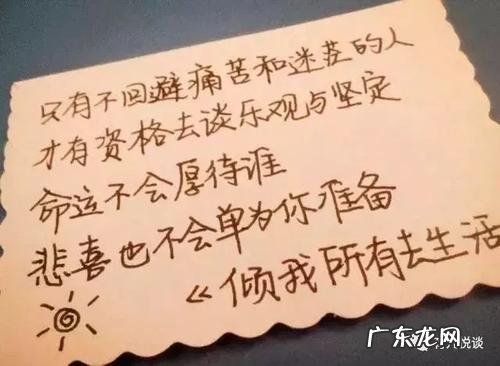 只有不回避痛苦和迷茫的人
才有资格去谈乐观与坚定
命运不会厚待谁
悲喜也不会单为你准备
《倾我所有去生活
广东龙网